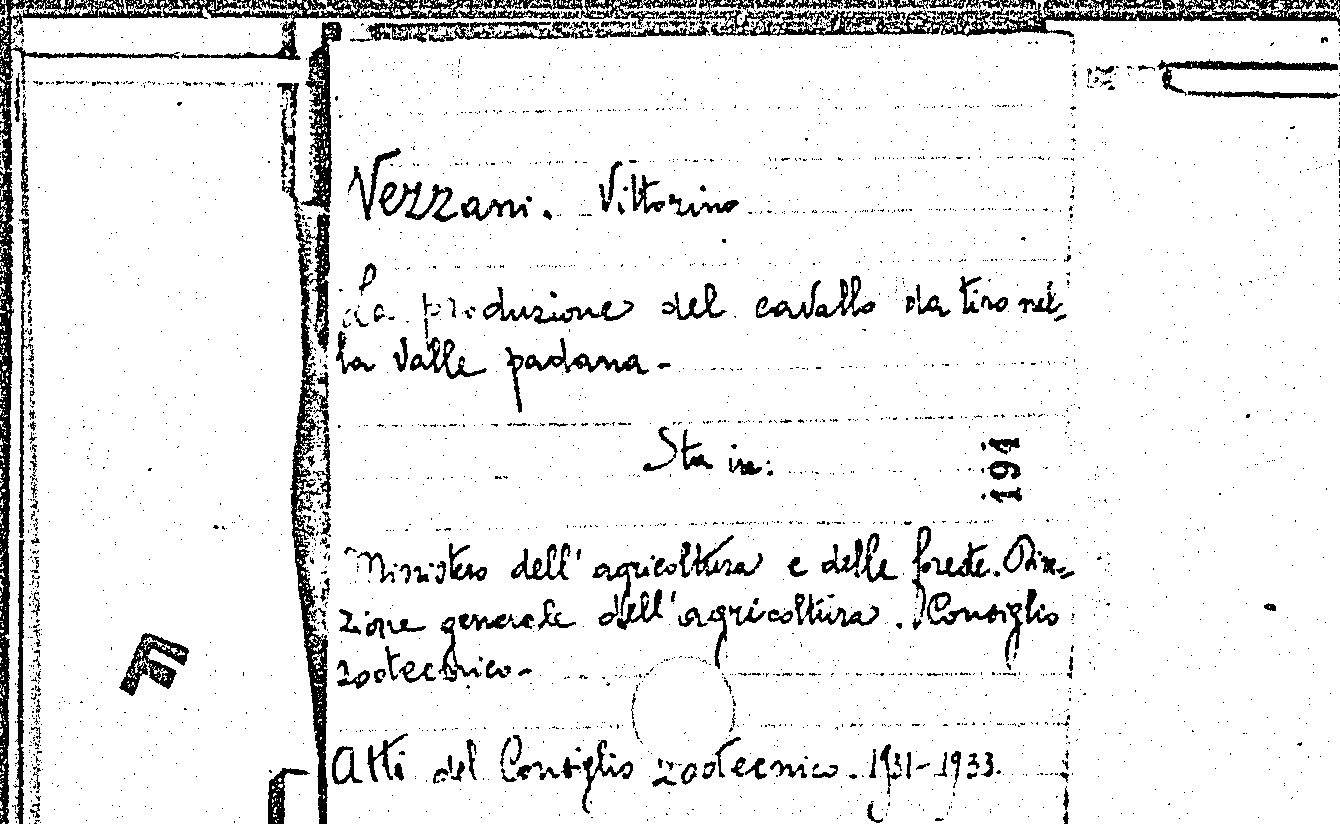 Vezzani. Vittorino
La produzione del cavallo da tiro nel-
la Valle padana-
Sta in:
191
Ministero dell'agricoltura e delle foreste. Dire-
zione generale dell'agricoltura. Consiglio
zootecnico-
F
Atti del Consiglio zootecnico. 1931-1933.